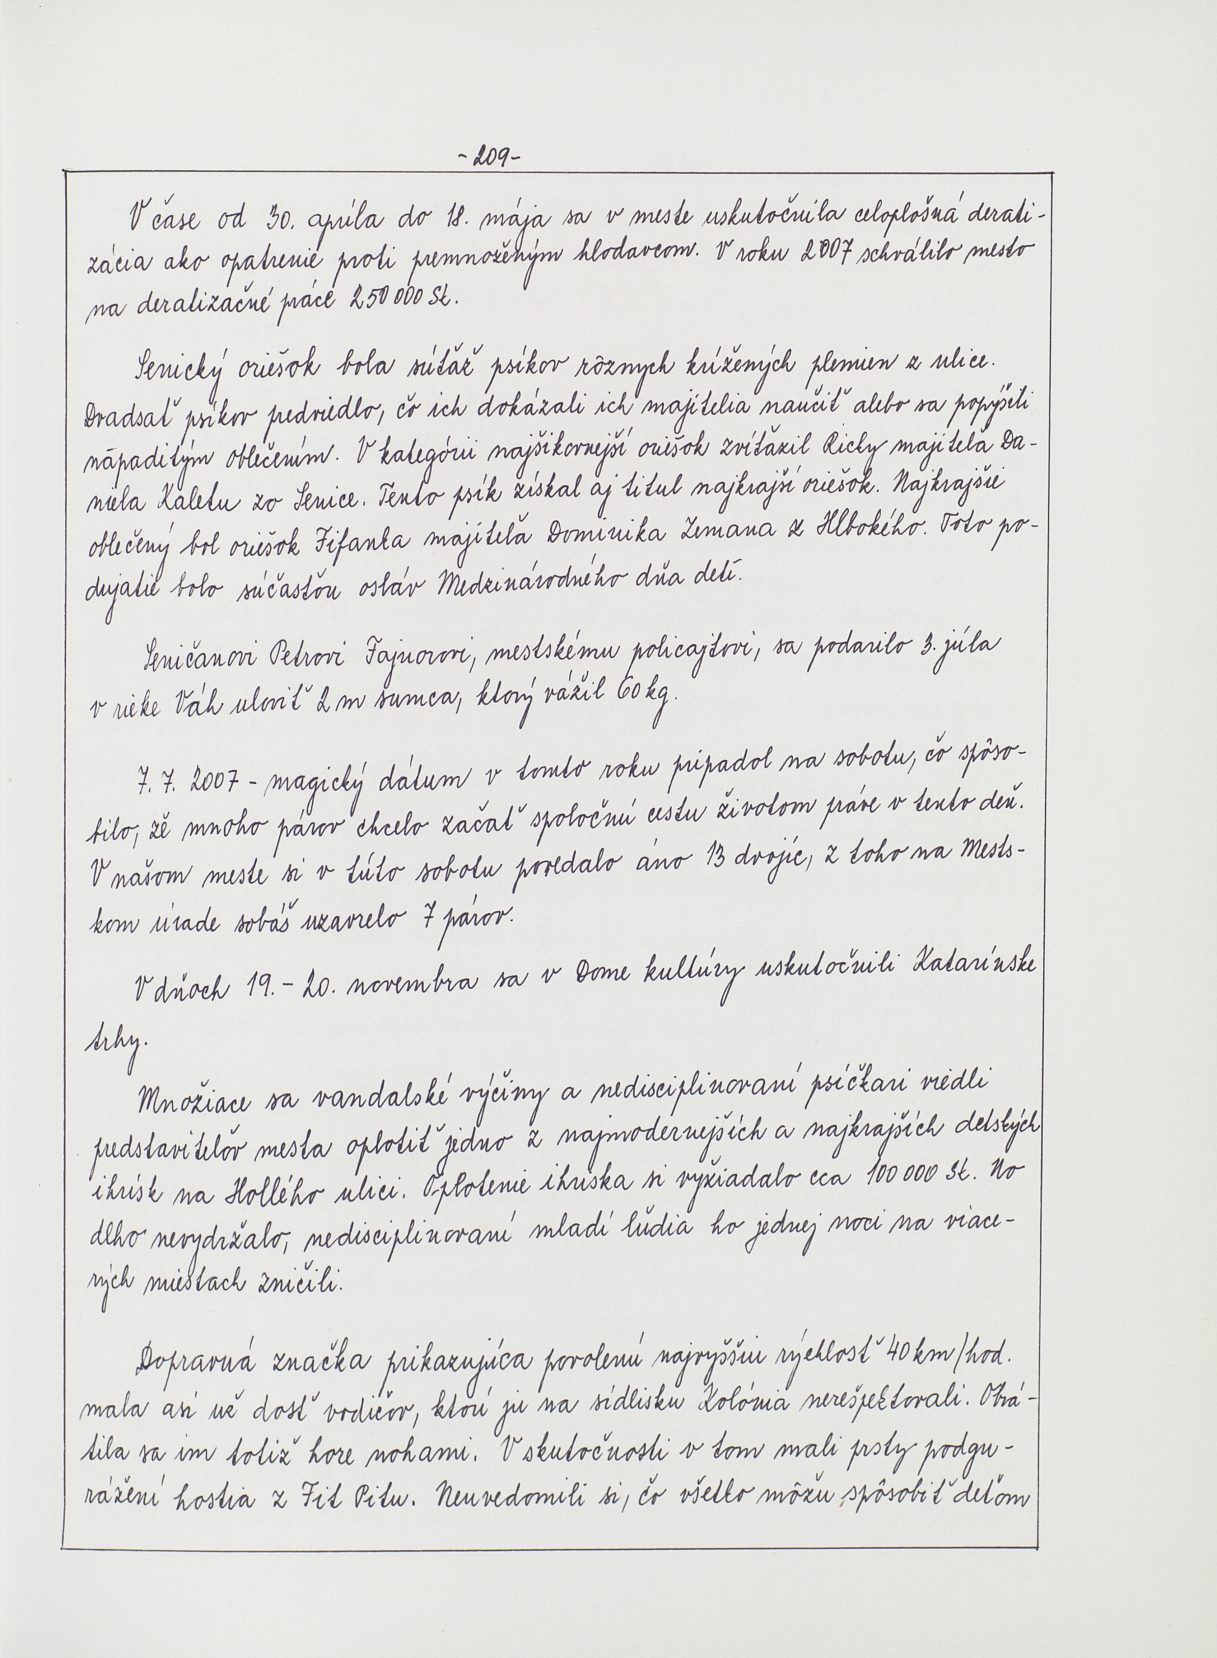 -209-
V čase od 30. apríla do 18. mája sa v meste uskutočnila celoplošná derati-
zácia ako opatrenie proti premnoženým hlodavcom. V roku 2007 schválilo mesto
na deratizačné práce 250 000 Sk.
Senický oriešok bola súťaž psíkov rôznych krížených plemien z ulice.
Dvadsať psíkov predviedlo, čo ich dokázali ich majitelia naučiť alebo sa popýšili
nápaditým oblečením. V kategórii najšikovnejší oriešok zvíťazil Richy majiteľa Da-
niela Kaletu zo Senice. Tento psík získal aj titul najkrajší oriešok. Najkrajšie
oblečený bol oriešok Fifanka majiteľa Dominika Zemana z Hlbokého. Toto po-
dujatie bolo súčasťou osláv Medzinárodného dňa detí.
Seničanovi Petrovi Fajnorovi, mestskému policajtovi, sa podarilo 3. júla
v rieke Váh uloviť 2 m sumca, ktorý vážil 60 kg.
7. 7. 2007 - magický dátum v tomto roku pripadol na sobotu, čo spôso-
bilo, že mnoho párov chcelo začať spoločnú cestu životom práve v tento deň.
V našom meste si v túto sobotu povedalo áno 13 dvojíc, z toho na Mests-
kom úrade sobáš uzavrelo 7 párov.
V dňoch 19. - 20. novembra sa v Dome kultúry uskutočnili Katarínske
trhy.
Množiace sa vandalské výčiny a nedisciplinovaní psíčkari viedli
predstaviteľov mesta oplotiť jedno z najmodernejších a najkrajších detských
ihrísk na Hollého ulici. Oplotenie ihriska si vyžiadalo cca 100 000 Sk. No
dlho nevydržalo, nedisciplinovaní mladí ľudia ho jednej noci na viace-
rých miestach zničili.
Dopravná značka prikazujúca povolenú najvyššiu rýchlosť 40 km/hod.
mala asi už dosť vodičov, ktorí ju na sídlisku Kolónia nerešpektovali. Obrá-
tila sa im totiž hore nohami. V skutočnosti v tom mali prsty podgu-
rážení hostia z Fit Pitu. Neuvedomili si, čo všetko môžu spôsobiť deťom